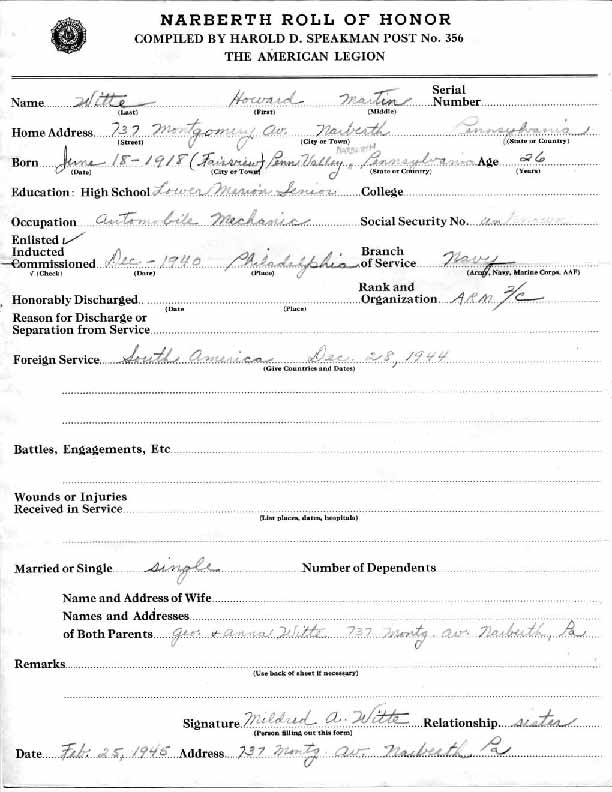 NARBERTH ROLL OF HONOR
COMPILED BY HAROLD D. SPEAKMAN POST No. 356
THE AMERICAN LEGION
Name Witte Howard Martin Serial Number
(Last) (First) (Middle)
Home Address 737 Montgomery Av. Narberth Pennsylvania
(Street) (City or Town) (State or Country)
NARBERTH
Born June 18-1918 (Fairview) Penn Valley, Pennsylvania Age 26
(Date) (City or Town) (State or Country) (Years)
Education: High School Lower Merion Senior College
Occupation Automobile Mechanic Social Security No. unknown
Enlisted ✓
Inducted Branch
Commissioned Dec-1940 Philadelphia of Service Navy
√ (Check) (Date) (Place) (Army, Navy, Marine Corps, AAF)
Rank and
Honorably Discharged Organization ARM 2/C
(Date (Place)
Reason for Discharge or
Separation from Service
Foreign Service South America Dec. 28, 1944
(Give Countries and Dates)
Battles, Engagements, Etc
Wounds or Injuries
Received in Service
(List places, dates, hospitals)
Married or Single single Number of Dependents
Name and Address of Wife
Names and Addresses
of Both Parents Geo. & Anna Witte 737 Montg. Av. Narberth, Pa
Remarks
(Use back of sheet if necessary)
Signature Mildred A. Witte Relationship sister
(Person filling out this form)
Date Feb. 25, 1945 Address 737 Montg. Av. Narberth, Pa